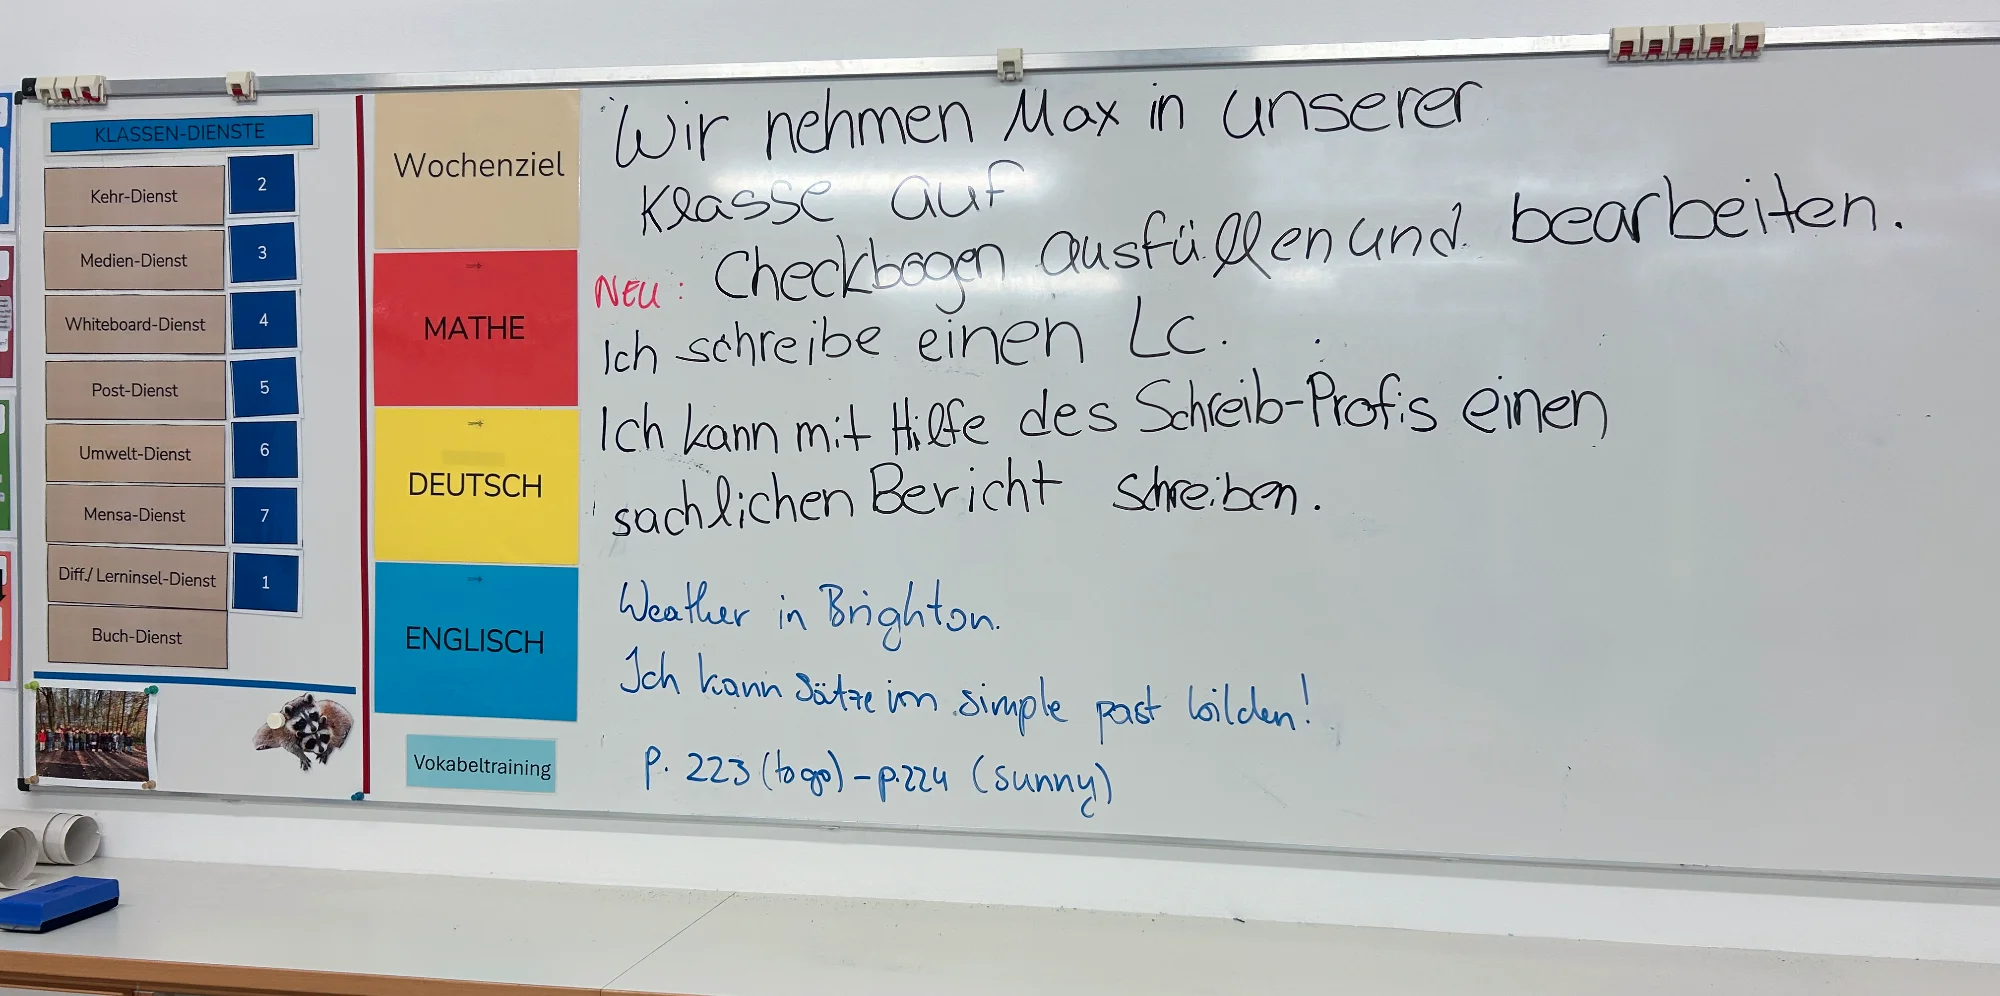 KLASSEN-DIENSTE
Kehr-Dienst 2
Medien-Dienst 3
Whiteboard-Dienst 4
Post-Dienst 5
Umwelt-Dienst 6
Mensa-Dienst 7
Diff./ Lerninsel-Dienst 1
Buch-Dienst
Wochenziel
Wir nehmen Max in unserer
Klasse auf
MATHE
NEU: Checkbogen ausfüllen und bearbeiten.
Ich schreibe einen LC.
DEUTSCH
Ich kann mit Hilfe des Schreib-Profis einen
sachlichen Bericht schreiben.
ENGLISCH
Weather in Brighton.
Ich kann Sätze im simple past bilden!
Vokabeltraining
p. 223 (to go) – p. 224 (sunny)